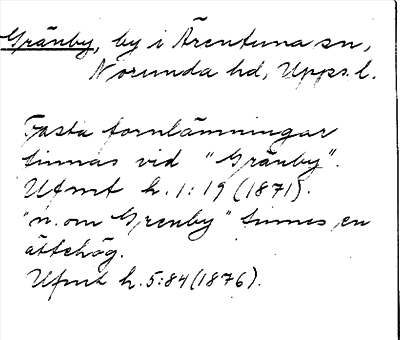 Gränby, by i Ärentuna sn,
Norunda hd, Upps. l.
Fasta fornlämningar
finnas vid "Gränby".
Ufmt h. 1: 19 (1871).
"n. om Grenby" finnes en
ättehög.
Ufmt h. 5:84 (1876).